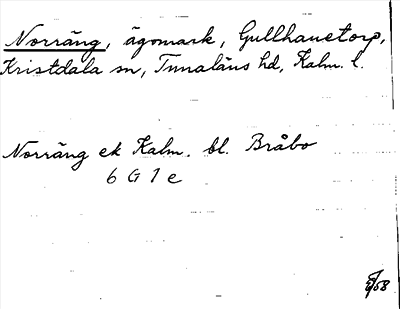 Norräng, ägomark, Gullhanetorp,
Kristdala sn, Tunaläns hd, Kalm. l.
Norräng ek Kalm. bl. Bråbo
6 G 1 e